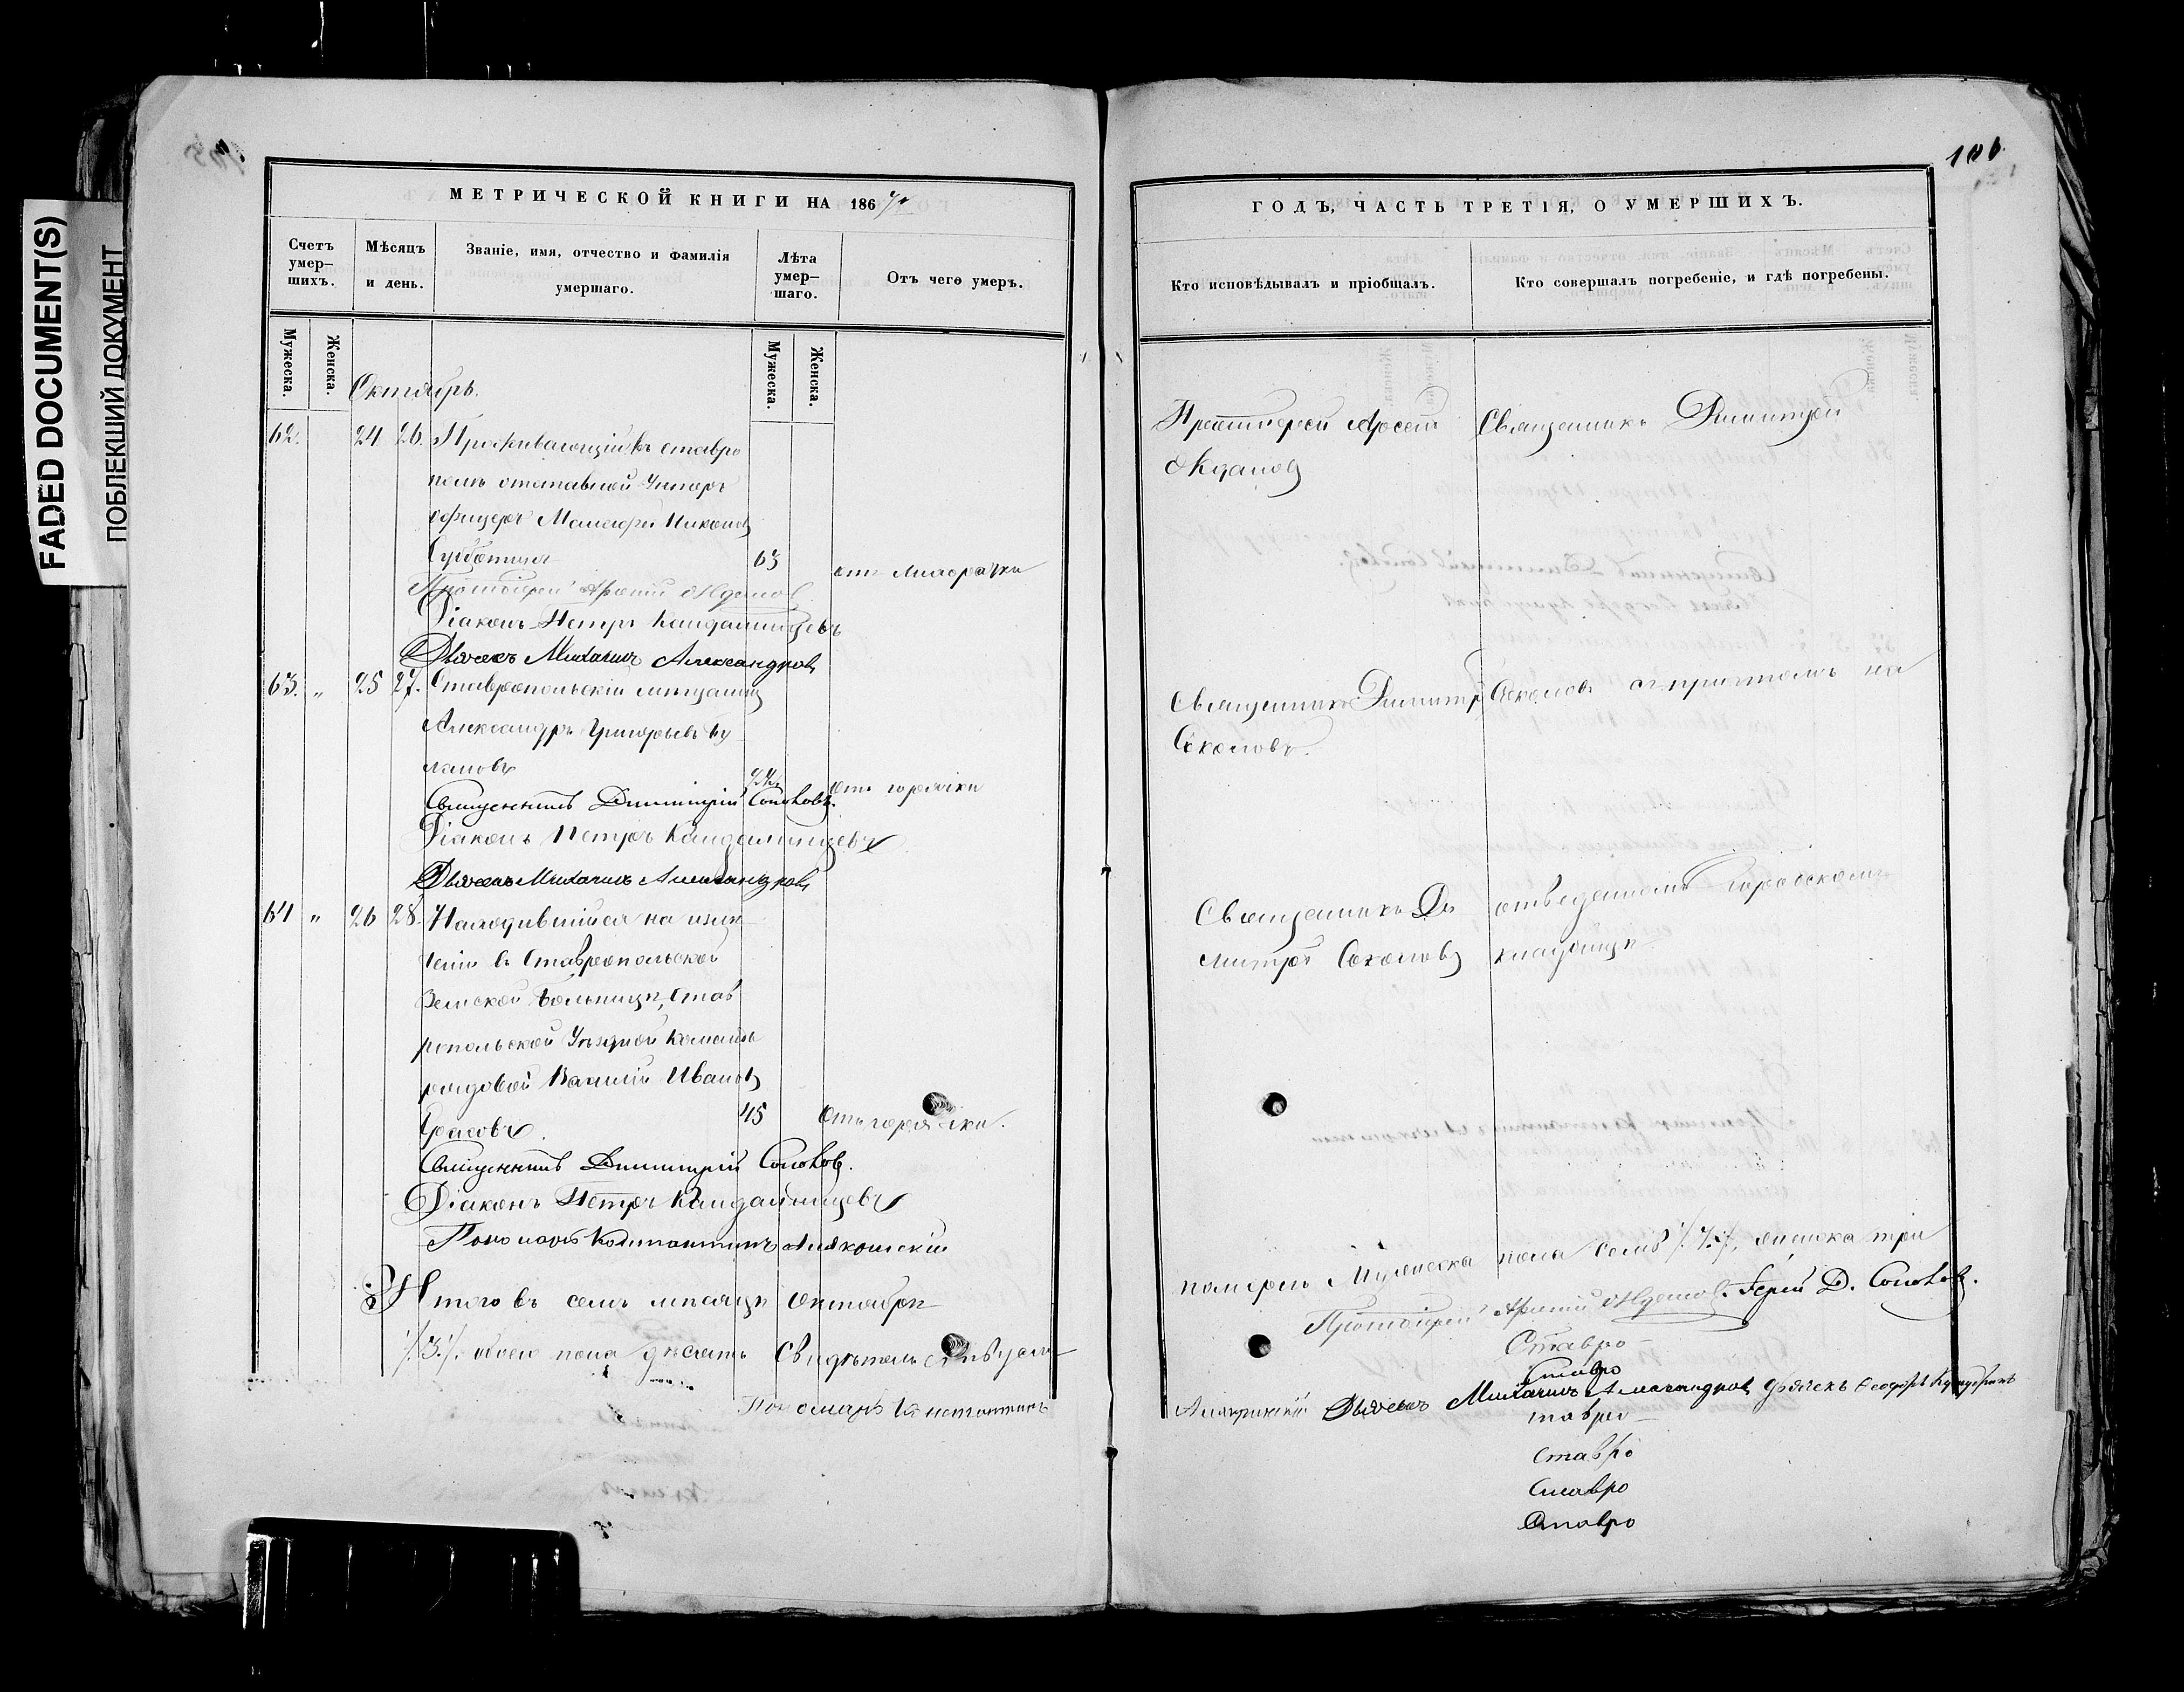 FADED DOCUMENT(S)
ПОБЛЕКШИЙ ДОКУМЕНТ
МЕТРИЧЕСКОЙ КНИГИ НА 186
Счетъ умер-шихъ.
Мѣсяцъ и день.
Званіе, имя, отчество и фамилія умершаго.
Лѣта умер-шаго.
Отъ чего умеръ.
Мужеска.
Женска.
Мужеска.
Женска.
Октябрь.
62. 24 26. Проживающій въ ставро
полѣ отставной Унтеръ
офицеръ
Субботинъ 63
Протоіерей Арсеній Ждановъ
Діаконъ Петръ Кандалинцевъ
Дьячекъ Михаилъ Александровъ
63. „ 25 27. Ставропольскій мѣщанинъ
Александръ Григорьевъ Бу
лановъ
отъ горячки
Священникъ Димитрій Соколовъ.
Діаконъ Петръ Кандалинцевъ
Дьячекъ Михаилъ Александровъ
64 „ 26 28. Находившійся на излѣ
ченіи въ Ставропольской
Земской больницѣ, Став
ропольской Уѣздной Команды
рядовой Василій Ивановъ
45 Отъ горячки.
Священникъ Димитрій Соколовъ.
Діаконъ Петръ Кандалинцевъ
Пономарь Константинъ
Итого въ семъ мѣсяцѣ Октябрѣ
/:3:/. обоего пола десять
Пономарь Константинъ
106.
ГОДЪ, ЧАСТЬ ТРЕТІЯ, О УМЕРШИХЪ.
Кто исповѣдывалъ и пріобщалъ.
Кто совершалъ погребеніе, и гдѣ погребены.
Протоіерей Арсеній
Ждановъ
Священникъ Димитрій
Священникъ Димитр
Соколовъ.
Соколовъ съ причтомъ на
Священникъ Ди
митрій Соколовъ
отведенномъ городскомъ
кладбищѣ
померло Мужеска пола семь /:7:/, женска три
Протоіерей Арсеній Ждановъ. Іерей Д. Соколовъ.
Ставро
Ставро
Дьячекъ Михаилъ Александровъ дьячекъ Ѳеодоръ
тавро
ставро
Ставро
Ставро